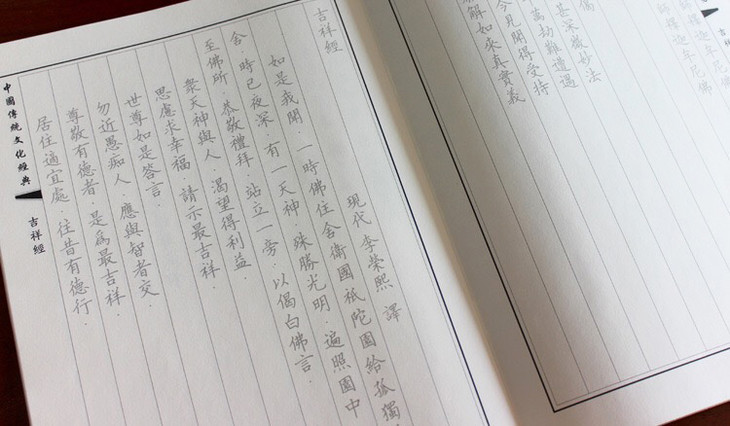 釋迦牟尼佛
偈
甚深微妙法
萬劫難遭遇
今見聞得受持
解如來真實義
吉祥
吉祥經
現代 李榮熙 譯
如是我聞．一時佛住舍衛國祇陀園給孤獨
舍．時已夜深．有一天神．殊勝光明．遍照園中
至佛所．恭敬禮拜．站立一旁．以偈白佛言．
眾天神與人．渴望得利益．
思慮求幸福．請示最吉祥．
世尊如是答言．
勿近愚痴人．應與智者交．
尊敬有德者．是為最吉祥．
居住適宜處．往昔有德行．
中國傳統文化經典
吉祥經